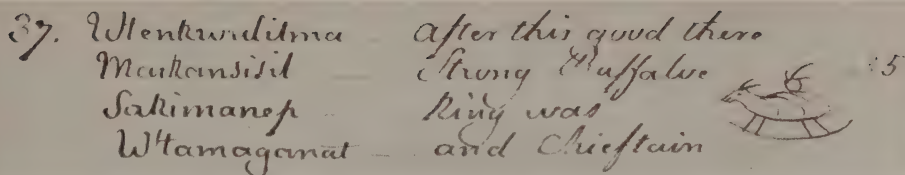 37. Wtenkwulitma – after this good there
Maskansisil – Strong Buffaloe :5
Sakimanep – King was
W'tamaganat – and Chieftain